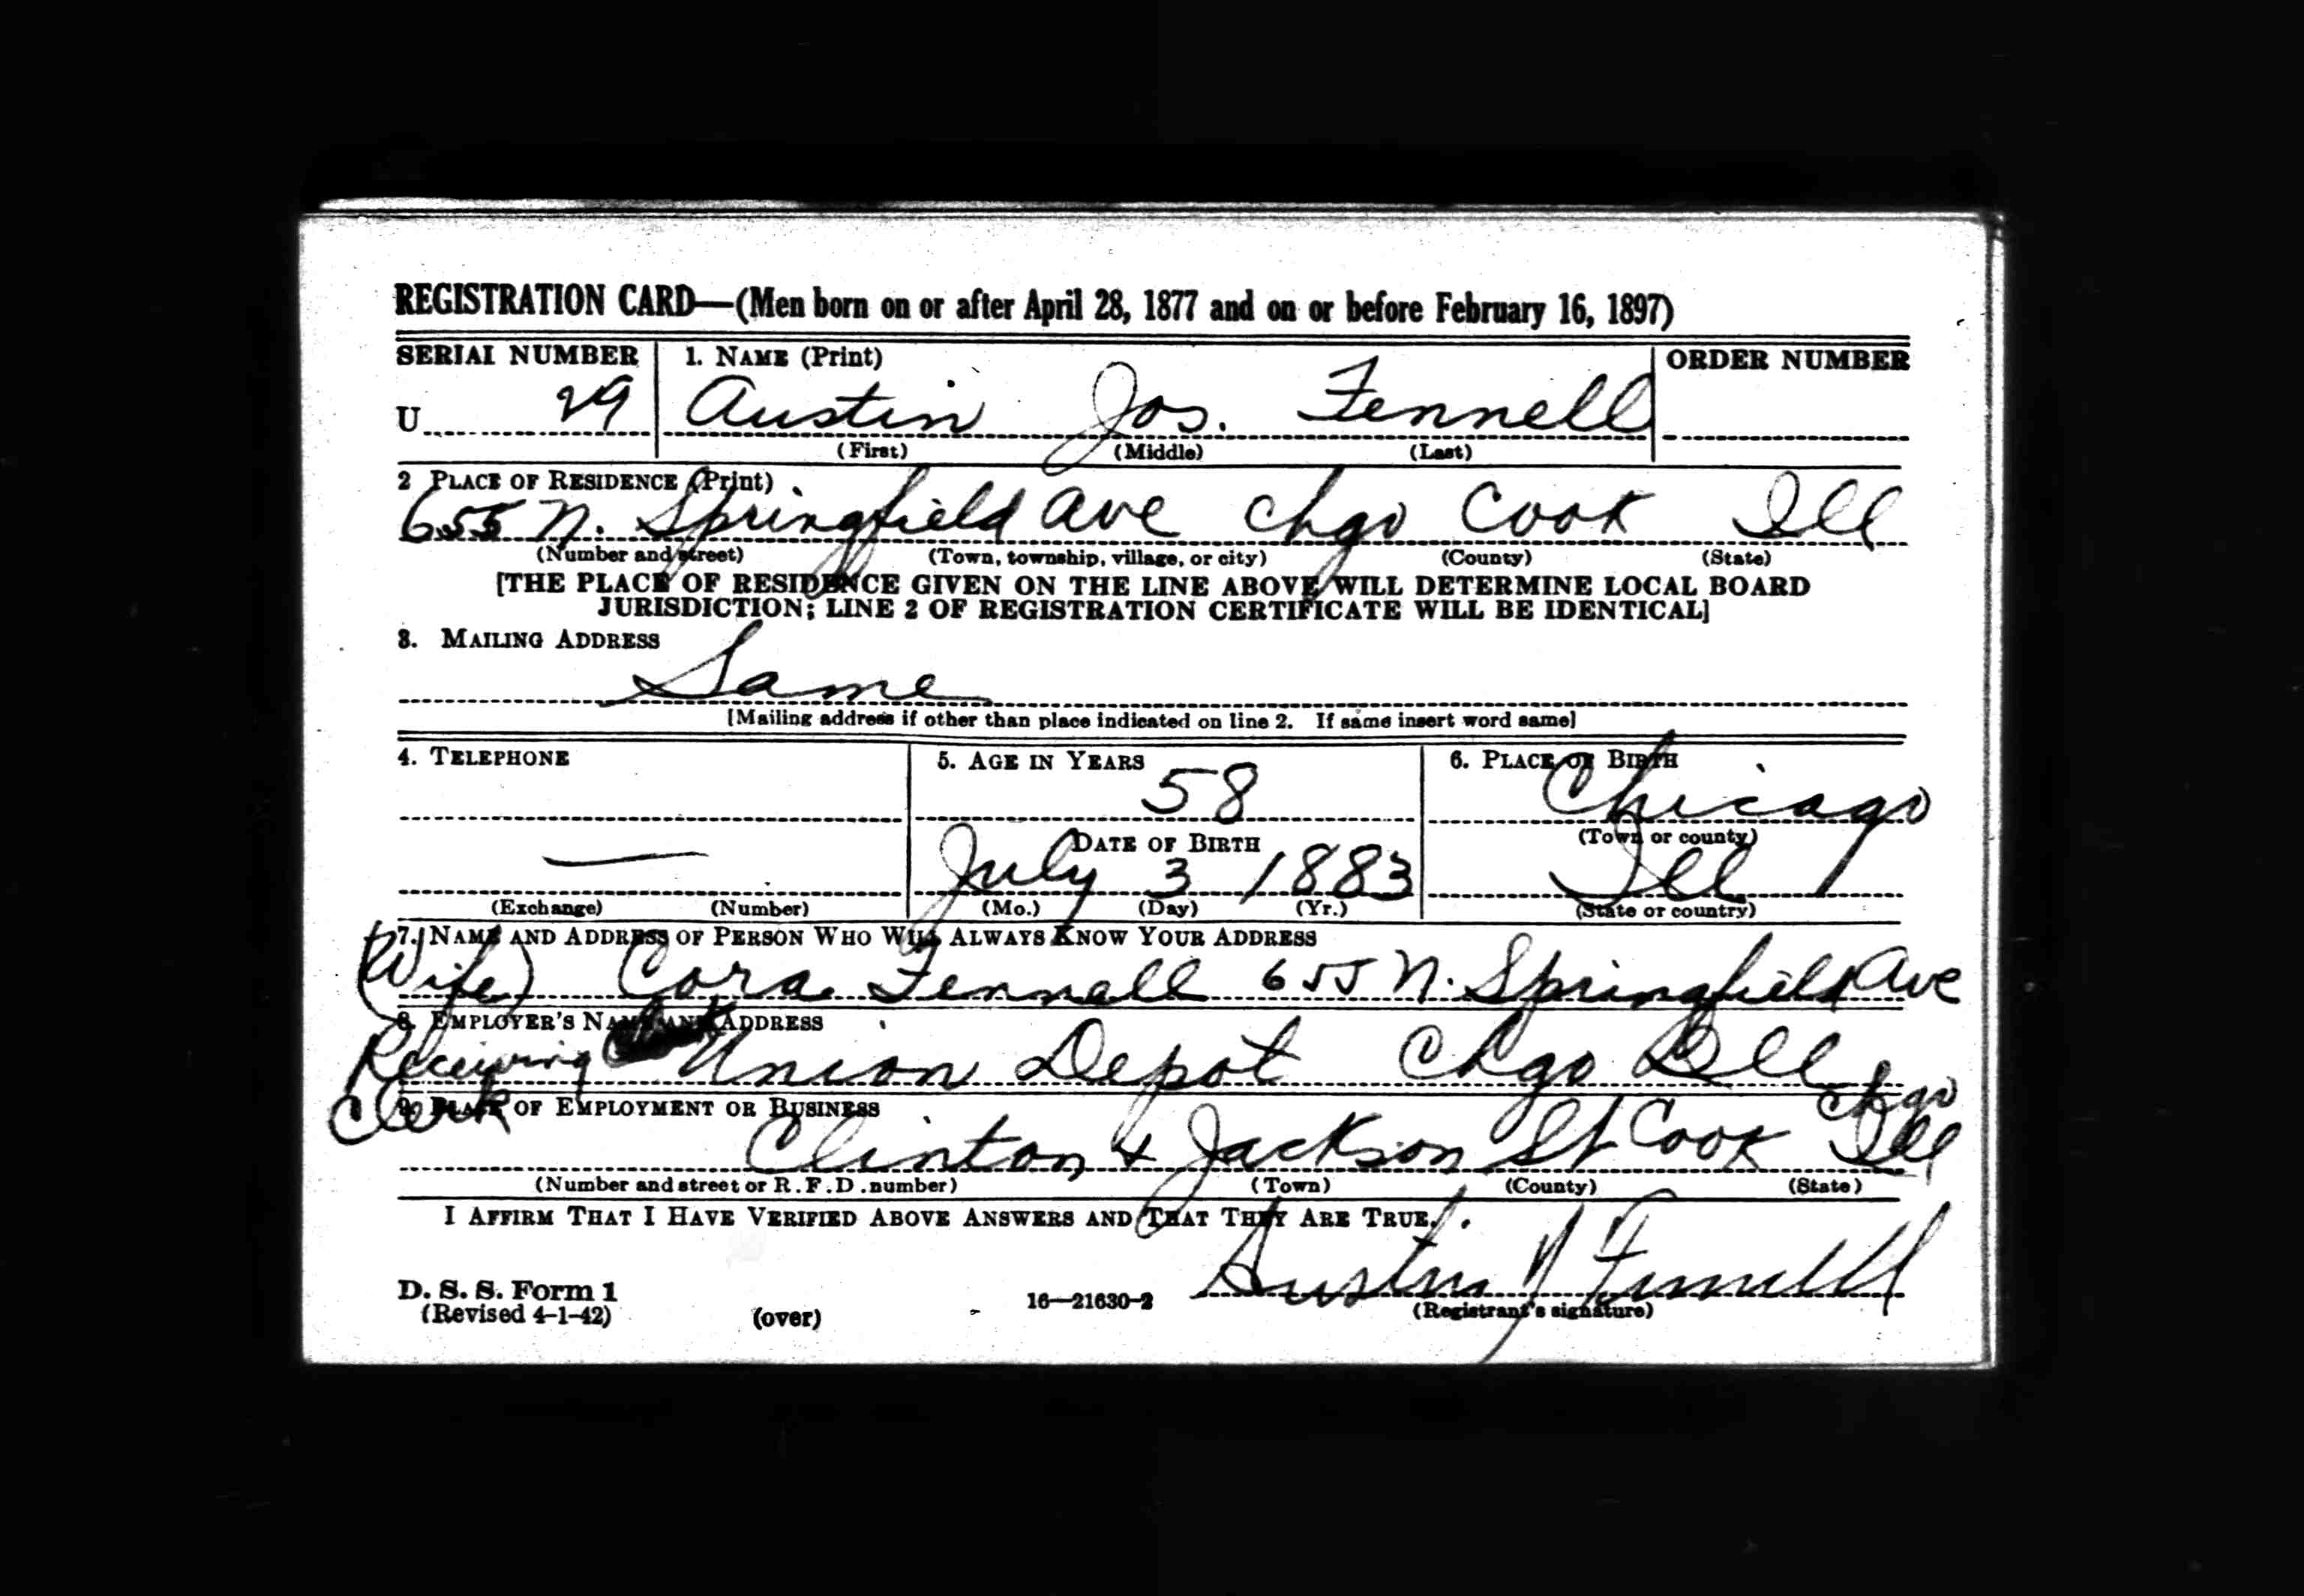 REGISTRATION CARD—(Men born on or after April 28, 1877 and on or before February 16, 1897)
SERIAL NUMBER 1. NAME (Print) ORDER NUMBER
U 29 Austin Jos. Fennell
(First) (Middle) (Last)
2 PLACE OF RESIDENCE (Print)
655 N. Springfield Ave Chgo Cook Ill
(Number and street) (Town, township, village, or city) (County) (State)
[THE PLACE OF RESIDENCE GIVEN ON THE LINE ABOVE WILL DETERMINE LOCAL BOARD
JURISDICTION; LINE 2 OF REGISTRATION CERTIFICATE WILL BE IDENTICAL]
3. MAILING ADDRESS
Same
[Mailing address if other than place indicated on line 2. If same insert word same]
4. TELEPHONE 5. AGE IN YEARS 6. PLACE OF BIRTH
58 Chicago
DATE OF BIRTH (Town or county)
— July 3 1883 Ill
(Exchange) (Number) (Mo.) (Day) (Yr.) (State or country)
7. NAME AND ADDRESS OF PERSON WHO WILL ALWAYS KNOW YOUR ADDRESS
(Wife) Cora Fennell 655 N. Springfield Ave
8. EMPLOYER'S NAME AND ADDRESS
Receiving Union Depot Chgo Ill
Clerk 9. PLACE OF EMPLOYMENT OR BUSINESS Chgo
Clinton + Jackson St Cook Ill
(Number and street or R. F. D. number) (Town) (County) (State)
I AFFIRM THAT I HAVE VERIFIED ABOVE ANSWERS AND THAT THEY ARE TRUE.
Austin J Fennell
D. S. S. Form 1
(Revised 4-1-42) (over) 16—21630-2 (Registrant's signature)